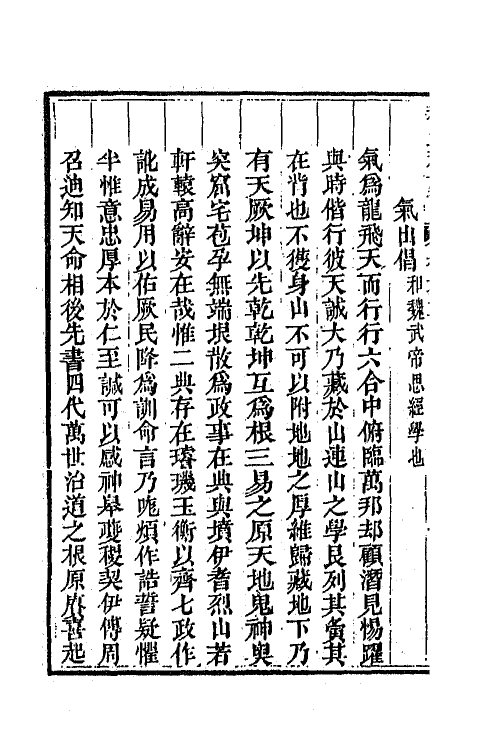 氣出倡和魏武帝思經學也
氣爲龍飛天而行行六合中俯臨萬邦却顧潛見惕躍
與時偕行彼天誠大乃藏於山連山之學艮列其夤其
在背也不獲身山不可以附地地之厚維歸藏地下乃
有天厥坤以先乾乾坤互爲根三易之原天地鬼神奥
突窟宅苞孕無端垠散爲政事在典與墳伊耆烈山若
軒轅高辭安在哉惟二典存在璿璣玉衡以齊七政作
訛成易用以佑厥民降爲訓命言乃哤煩作誥誓疑懼
半惟意忠厚本於仁至誠可以感神皋夔稷契伊傅周
召迪知天命相後先書四代萬世治道之根原放書起